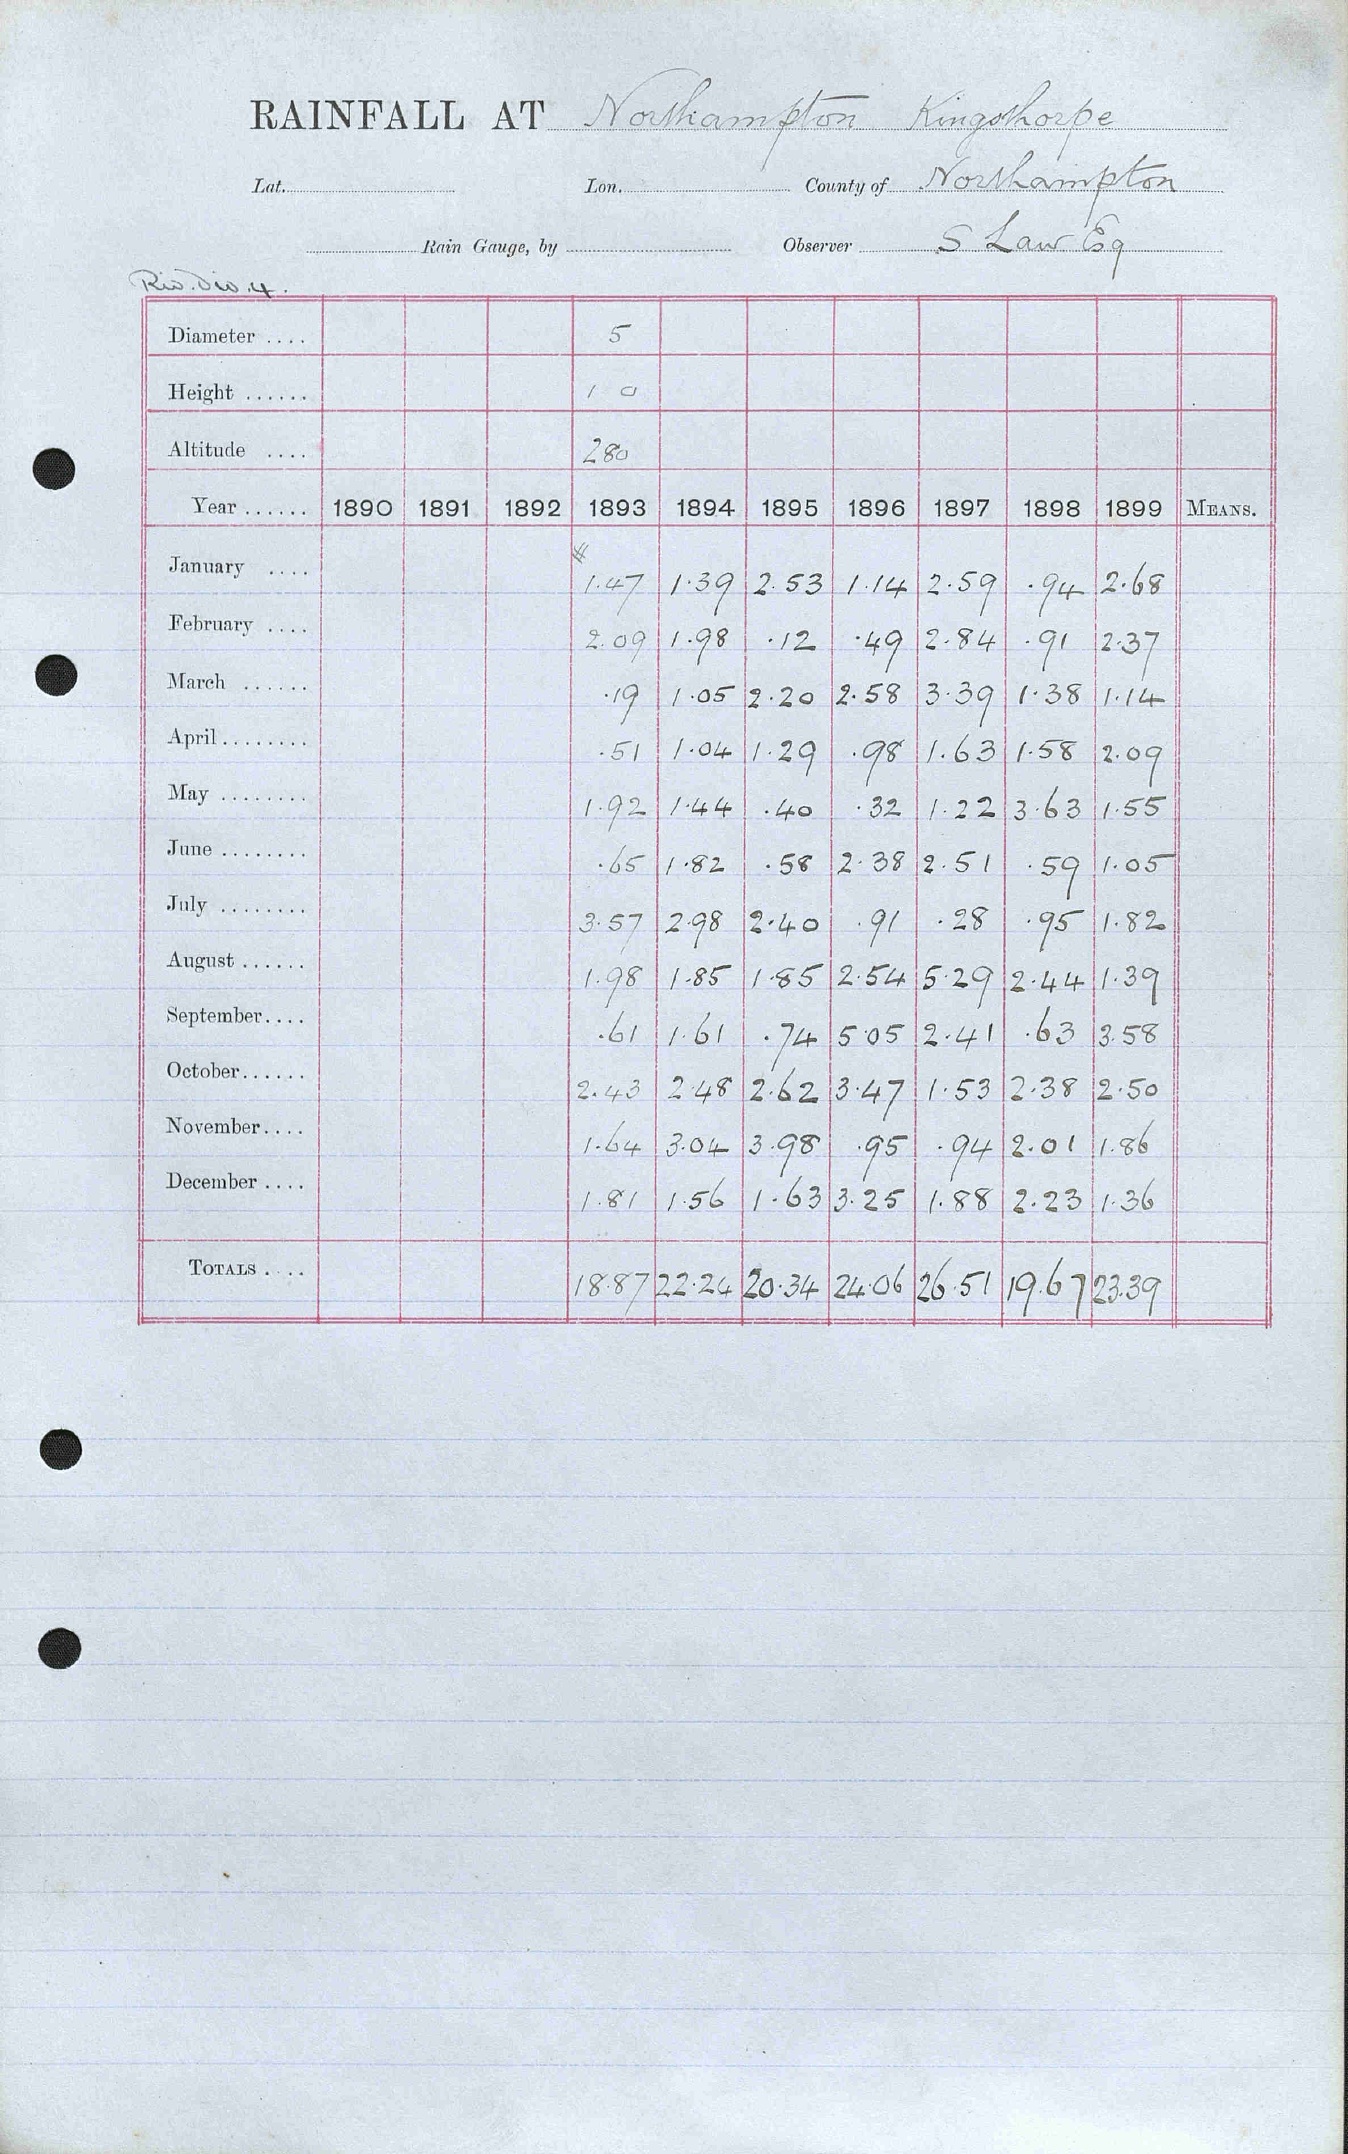 RAINFALL AT Northampton Kingsthorpe
Lat. Lon. County of Northampton
Rain Gauge, by Observer S Law Eq
Riv. Div. 4.
Diameter .... 5
Height ...... 1 0
Altitude .... 280
Year ...... 1890 1891 1892 1893 1894 1895 1896 1897 1898 1899 MEANS.
January .... 1.47 1.39 2.53 1.14 2.59 .94 2.68
February .... 2.09 1.98 .12 .49 2.84 .91 2.37
March ...... .19 1.05 2.20 2.58 3.39 1.38 1.14
April........ .51 1.04 1.29 .98 1.63 1.58 2.09
May ........ 1.92 1.44 .40 .32 1.22 3.63 1.55
June ........ .65 1.82 .58 2.38 2.51 .59 1.05
July ........ 3.57 2.98 2.40 .91 .28 .95 1.82
August ...... 1.98 1.85 1.85 2.54 5.29 2.44 1.39
September.... .61 1.61 .74 5.05 2.41 .63 3.58
October...... 2.43 2.48 2.62 3.47 1.53 2.38 2.50
November.... 1.64 3.04 3.98 .95 .94 2.01 1.86
December .... 1.81 1.56 1.63 3.25 1.88 2.23 1.36
TOTALS .... 18.87 22.24 20.34 24.06 26.51 19.67 23.39